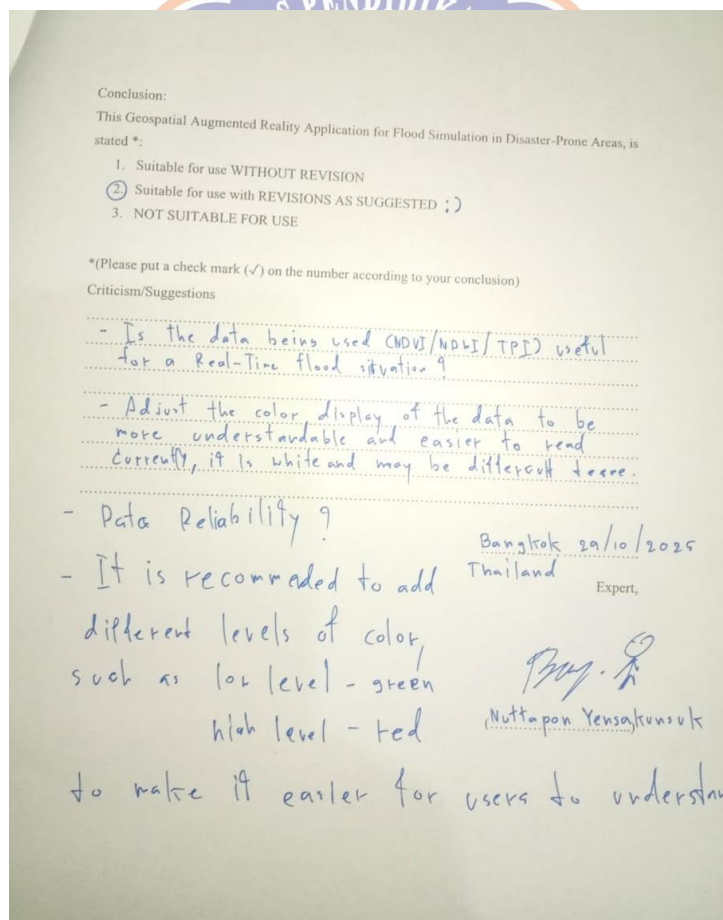 S PENDIDIKA
Conclusion:
This Geospatial Augmented Reality Application for Flood Simulation in Disaster-Prone Areas, is
stated *:
1. Suitable for use WITHOUT REVISION
2. Suitable for use with REVISIONS AS SUGGESTED :)
3. NOT SUITABLE FOR USE
*(Please put a check mark (✓) on the number according to your conclusion)
Criticism/Suggestions
- Is the data being used (NDVI/NDWI/TPI) useful
for a Real-Time flood situation ?
- Adjust the color display of the data to be
more understandable and easier to read
Currently, it is white and may be
- Data Reliability ?
Bangkok 29/10/2025
- It is recommended to add
Thailand
Expert,
different levels of color,
such as low level - green
high level - red
Nuttapon Yensakunsuk
to make it easier for users to understan